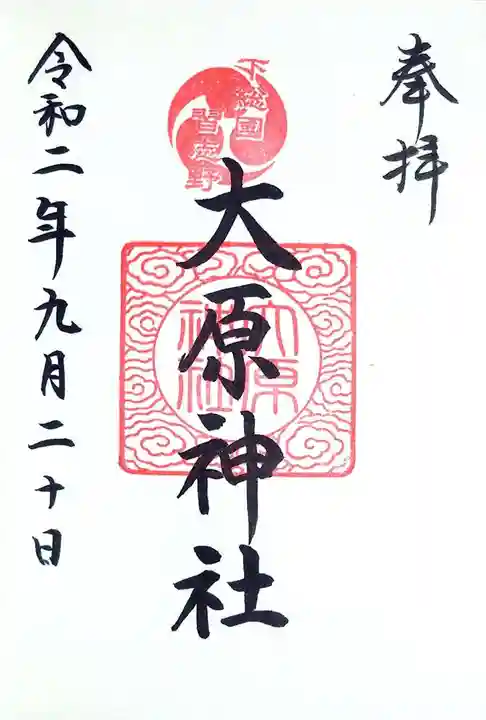 奉拝
下総國
習志野
大原神社
大原
神社
令和二年九月二十日